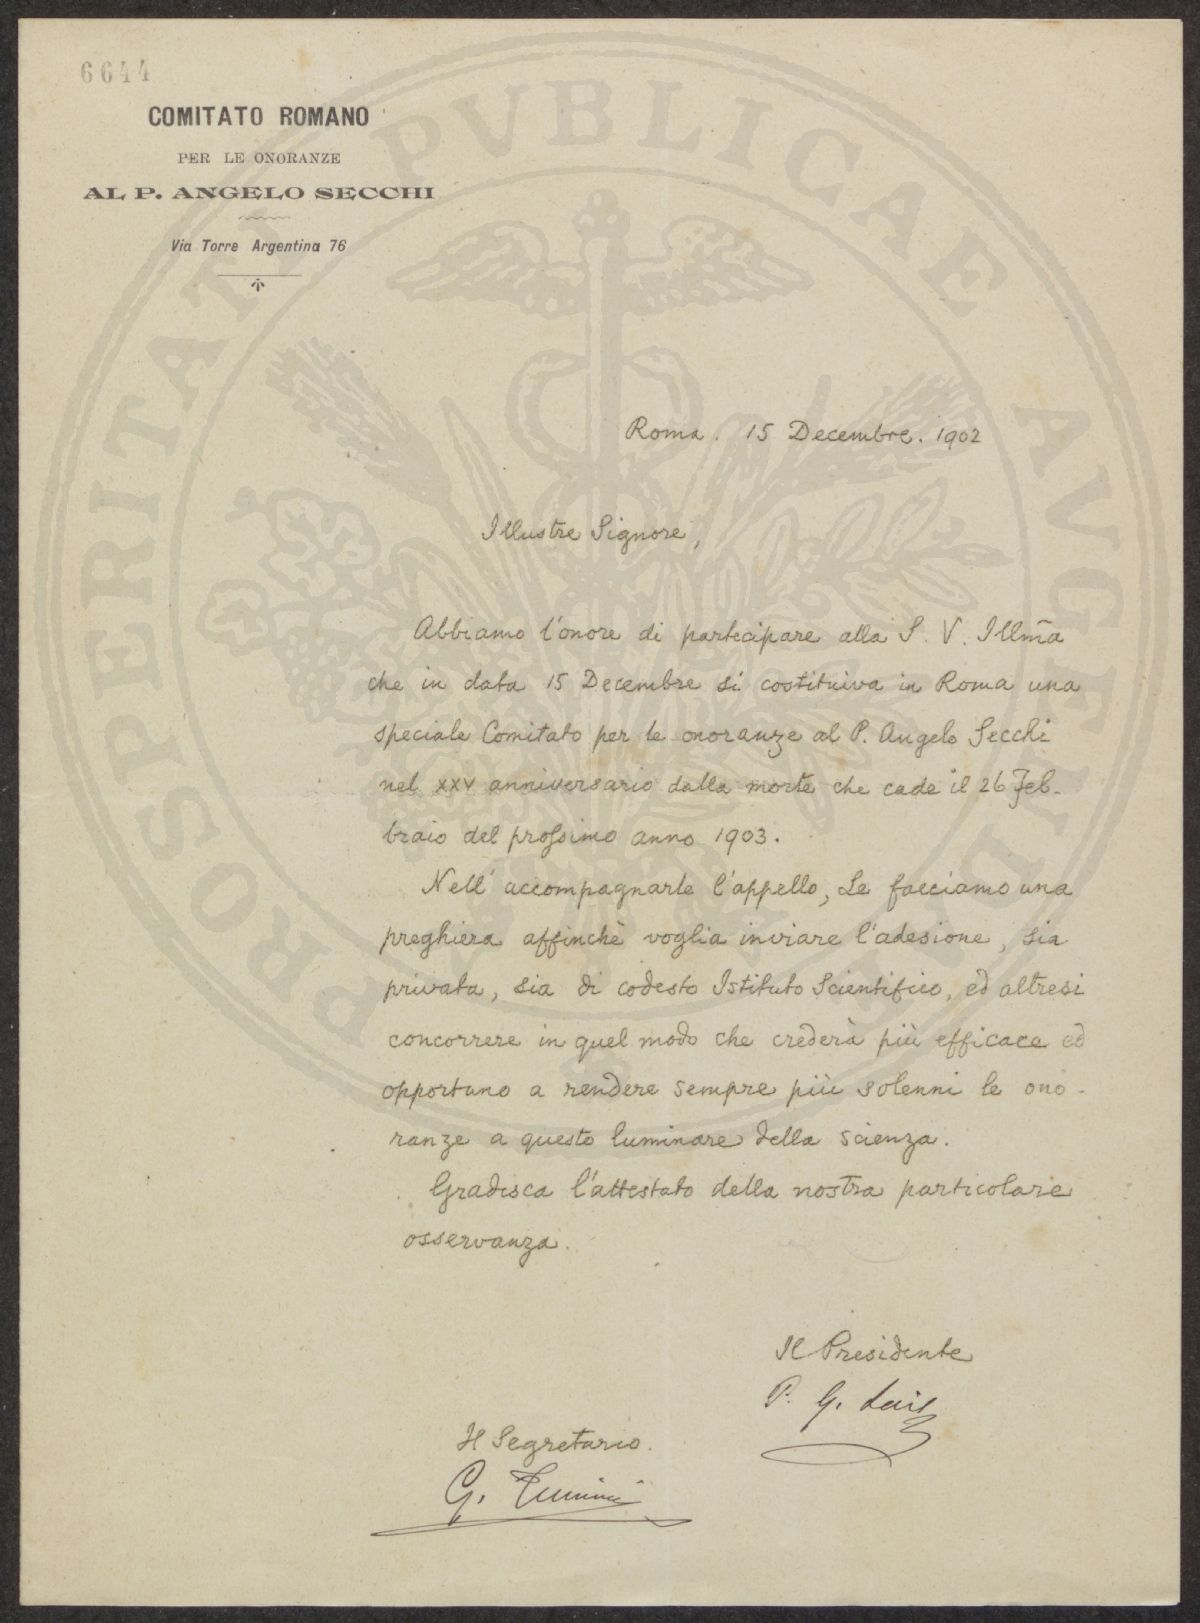 6644
COMITATO ROMANO
PER LE ONORANZE
AL P. ANGELO SECCHI
Via Torre Argentina 76
PROSPERITATI PVBLICAE AVGENDAE
Roma. 15 Decembre. 1902
Illustre Signore,
Abbiamo l'onore di partecipare alla S. V. Illm̃a
che in data 15 Decembre si costituiva in Roma una
speciale Comitato per le onoranze al P. Angelo Secchi
nel XXV anniversario dalla morte che cade il 26 Feb-
braio del prossimo anno 1903.
Nell' accompagnarle l'appello, Le facciamo una
preghiera affinchè voglia inviare l'adesione, sia
privata, sia di codesto Istituto Scientifico, ed altresi
concorrere in quel modo che crederà più efficace ed
opportuno a rendere sempre più solenni le ono-
ranze a questo luminare della scienza.
Gradisca l'attestato della nostra particolare
osservanza.
Il Presidente
P. G. Lais
Il Segretario.
G.